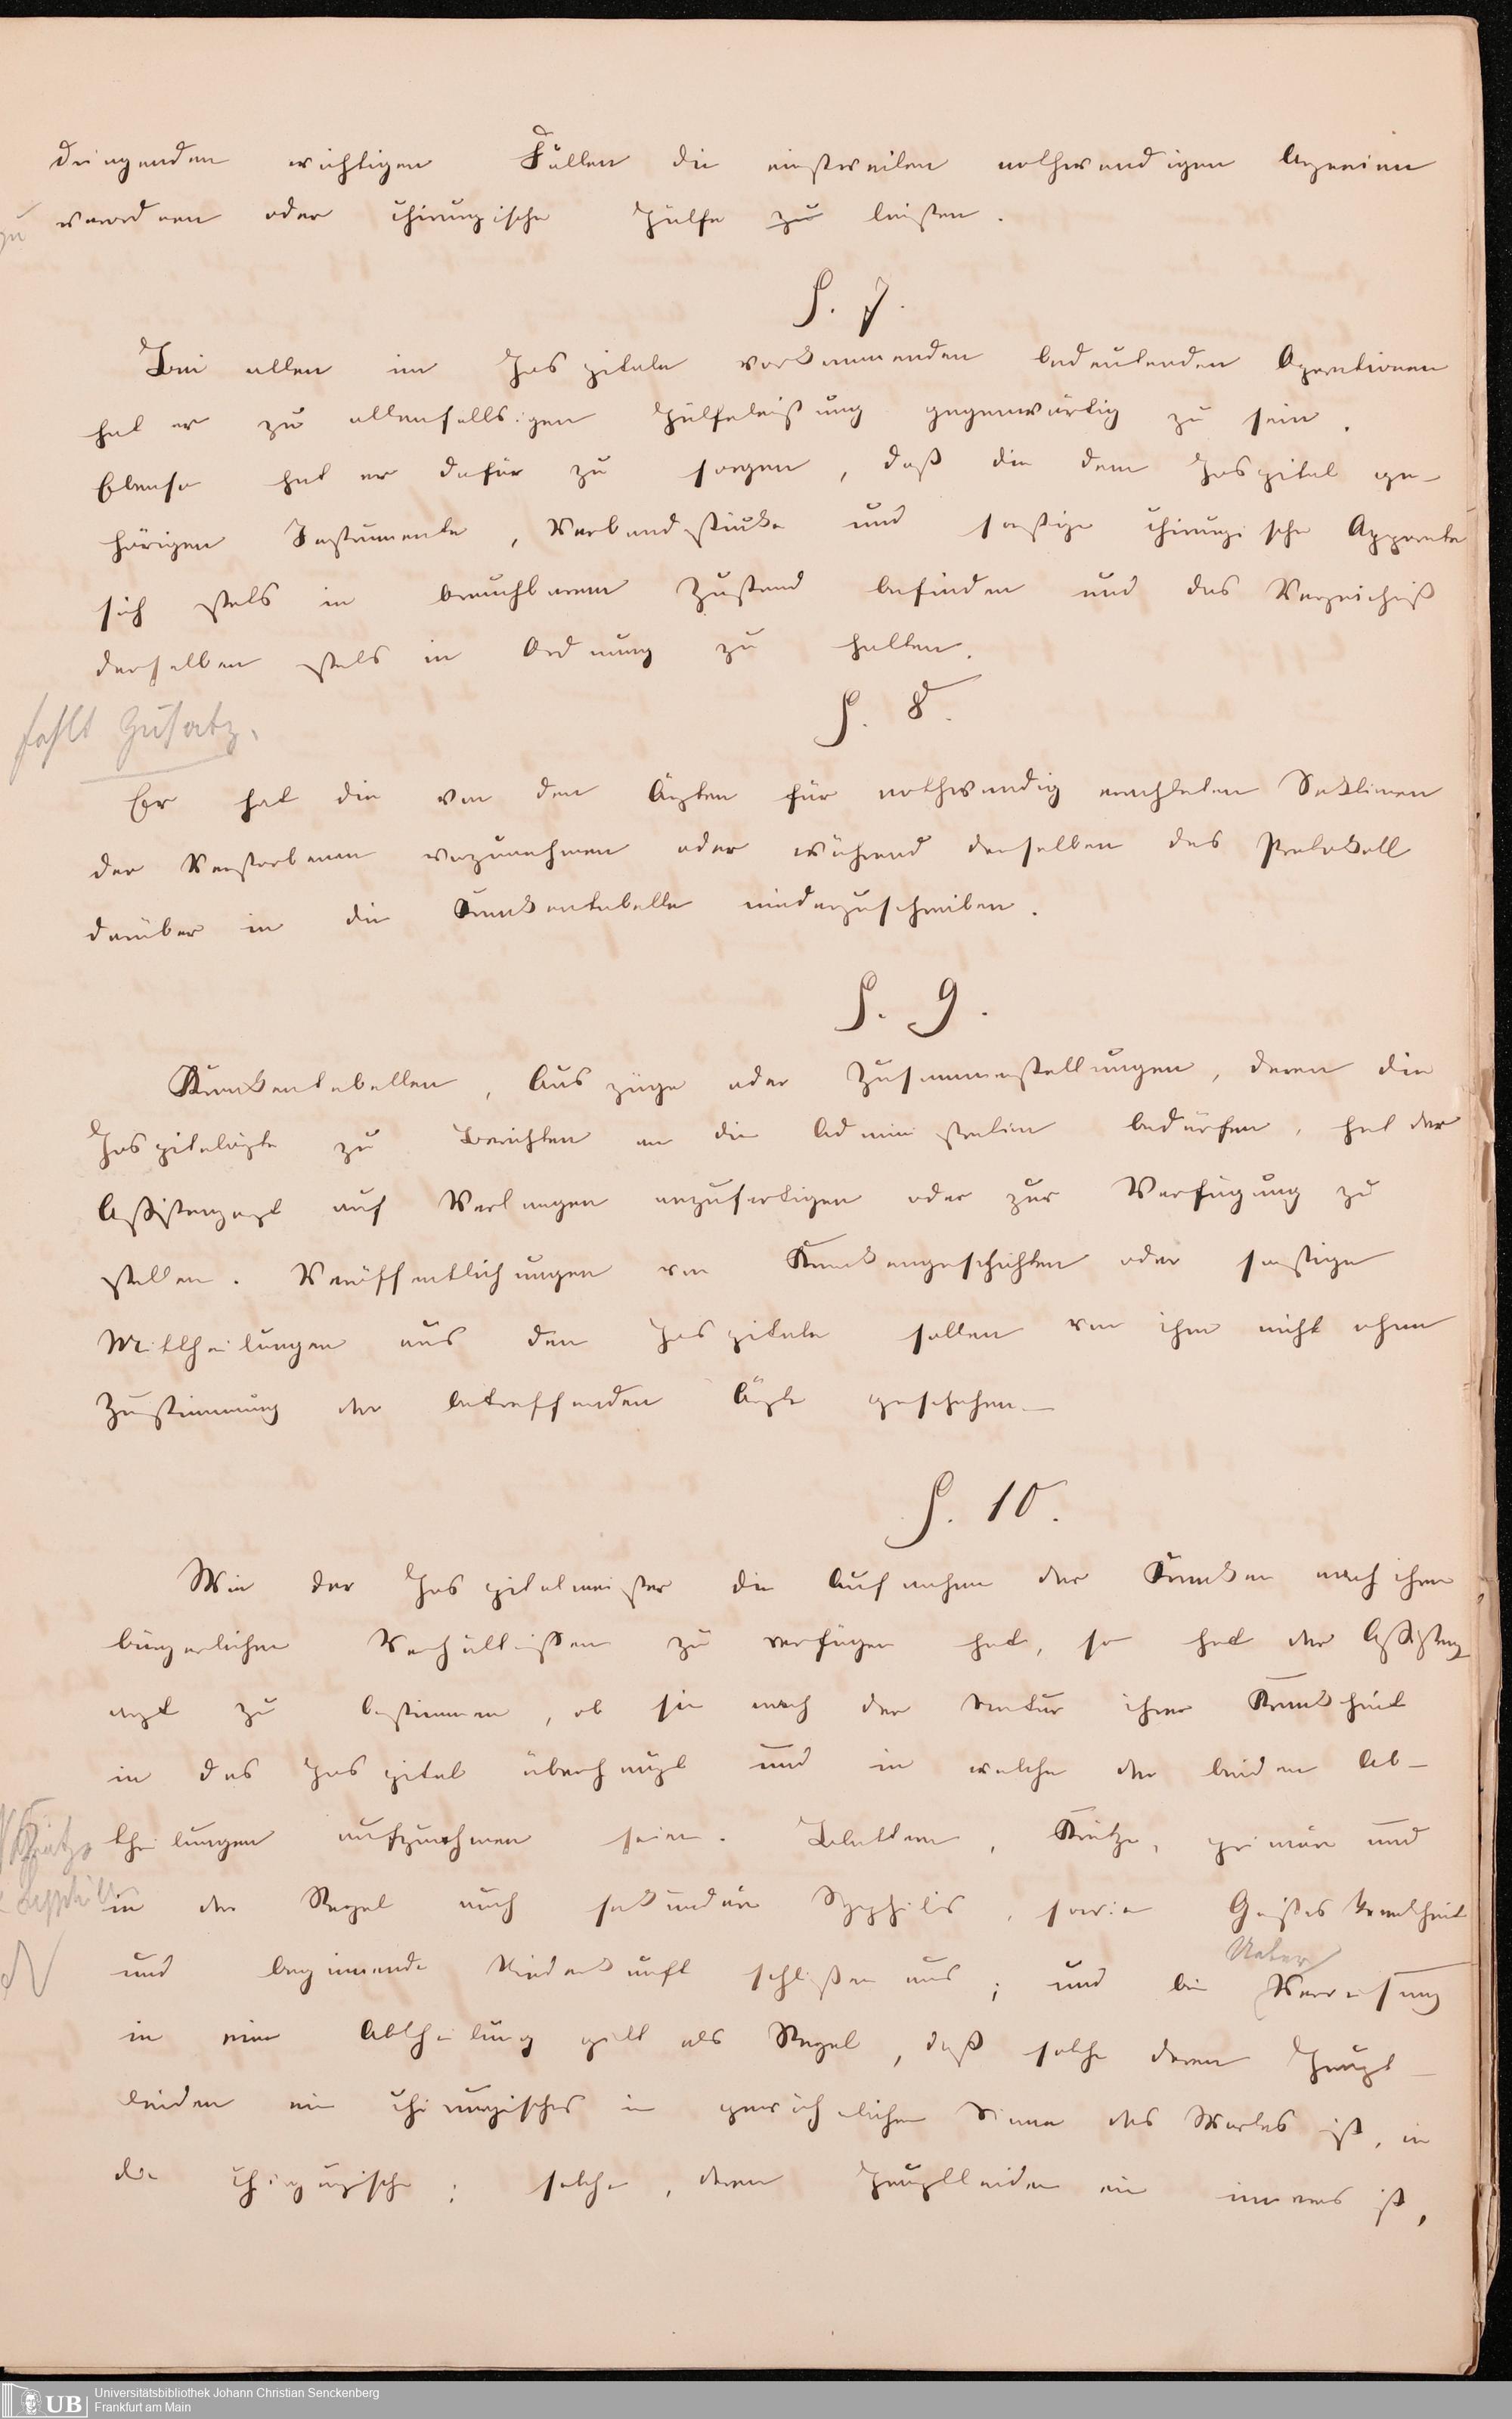 dringenden wichtigen Fällen die einstweilen nothwendigen Arzneien
zu
verordnen oder chirurgische Hülfe zu leisten.
§. 7.
Bei allen im Hospitale vorkommenden bedeutenden Operationen
hat er zu allenfallsigen Hülfeleistung gegenwärtig zu sein.
Ebenso hat er dafür zu sorgen, daß die dem Hospital ge-
hörigen Instrumente, Verbandstücke und sonstige chirurgische Apparate
sich stets in brauchbarem Zustand befinden und das Verzeichniß
derselben stets in Ordnung zu halten.
§. 8.
fehlt Zusatz.
Er hat die von den Ärzten für nothwendig erachteten Sektionen
der Verstorbenen vorzunehmen oder während derselben das Protokoll
darüber in die Krankentabelle niederzuschreiben.
§. 9.
Krankentabellen, Auszüge oder Zusammenstellungen, deren die
Hospitalärzte zu Berichten an die Administration bedürfen, hat der
Assistenzarzt auf Verlangen anzufertigen oder zur Verfügung zu
stellen. Veröffentlichungen von Krankengeschichten oder sonstige
Mittheilungen aus dem Hospitale sollen von ihm nicht ohne
Zustimmung der betreffenden Ärzte geschehen.
§. 10.
Wie der Hospitalmeister die Aufnahme der Kranken nach ihren
bürgerlichen Verhältnissen zu verfügen hat, so hat der Assistenz
arzt zu bestimmen, ob sie nach der Natur ihrer Krankheit
in das Hospital überhaupt und in welche der beiden Ab-
Krätze
theilungen aufzunehmen seien. Blattern, Krätze, primäre und
Syphilis
in der Regel auch sekundäre Syphilis, sowie Geisteskrankheit
Ueber
und beginnende Niederkunft schließen aus; und bei Verweisung
in eine Abtheilung gilt als Regel, daß solche deren Haupt-
leiden ein chirurgisches im gewöhnlichen Sinne des Wortes ist, in
die chirurgische; solche, deren Hauptleiden ein inneres ist,
Universitätsbibliothek Johann Christian Senckenberg
Frankfurt am Main
UB